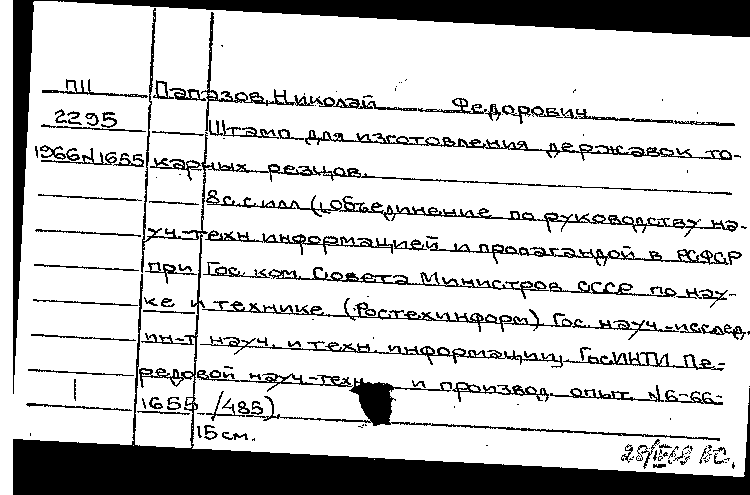 П11 Папазов, Николай Федорович
2295 Штамп для изготовления державок то-
1966 N1655 карных резцов.
8с. с илл (Объединение по руководству на-
уч.-техн информацией и пропагандой в РСФСР
при Гос. ком. Совета Министров СССР по нау-
ке и технике (Ростехинформ) Гос. науч.-исслед.
ин-т науч. и техн. информации, ГосИНТИ. Пе-
редовой науч.-техн и производ. опыт. N6-66-
1655/485).
15 см.